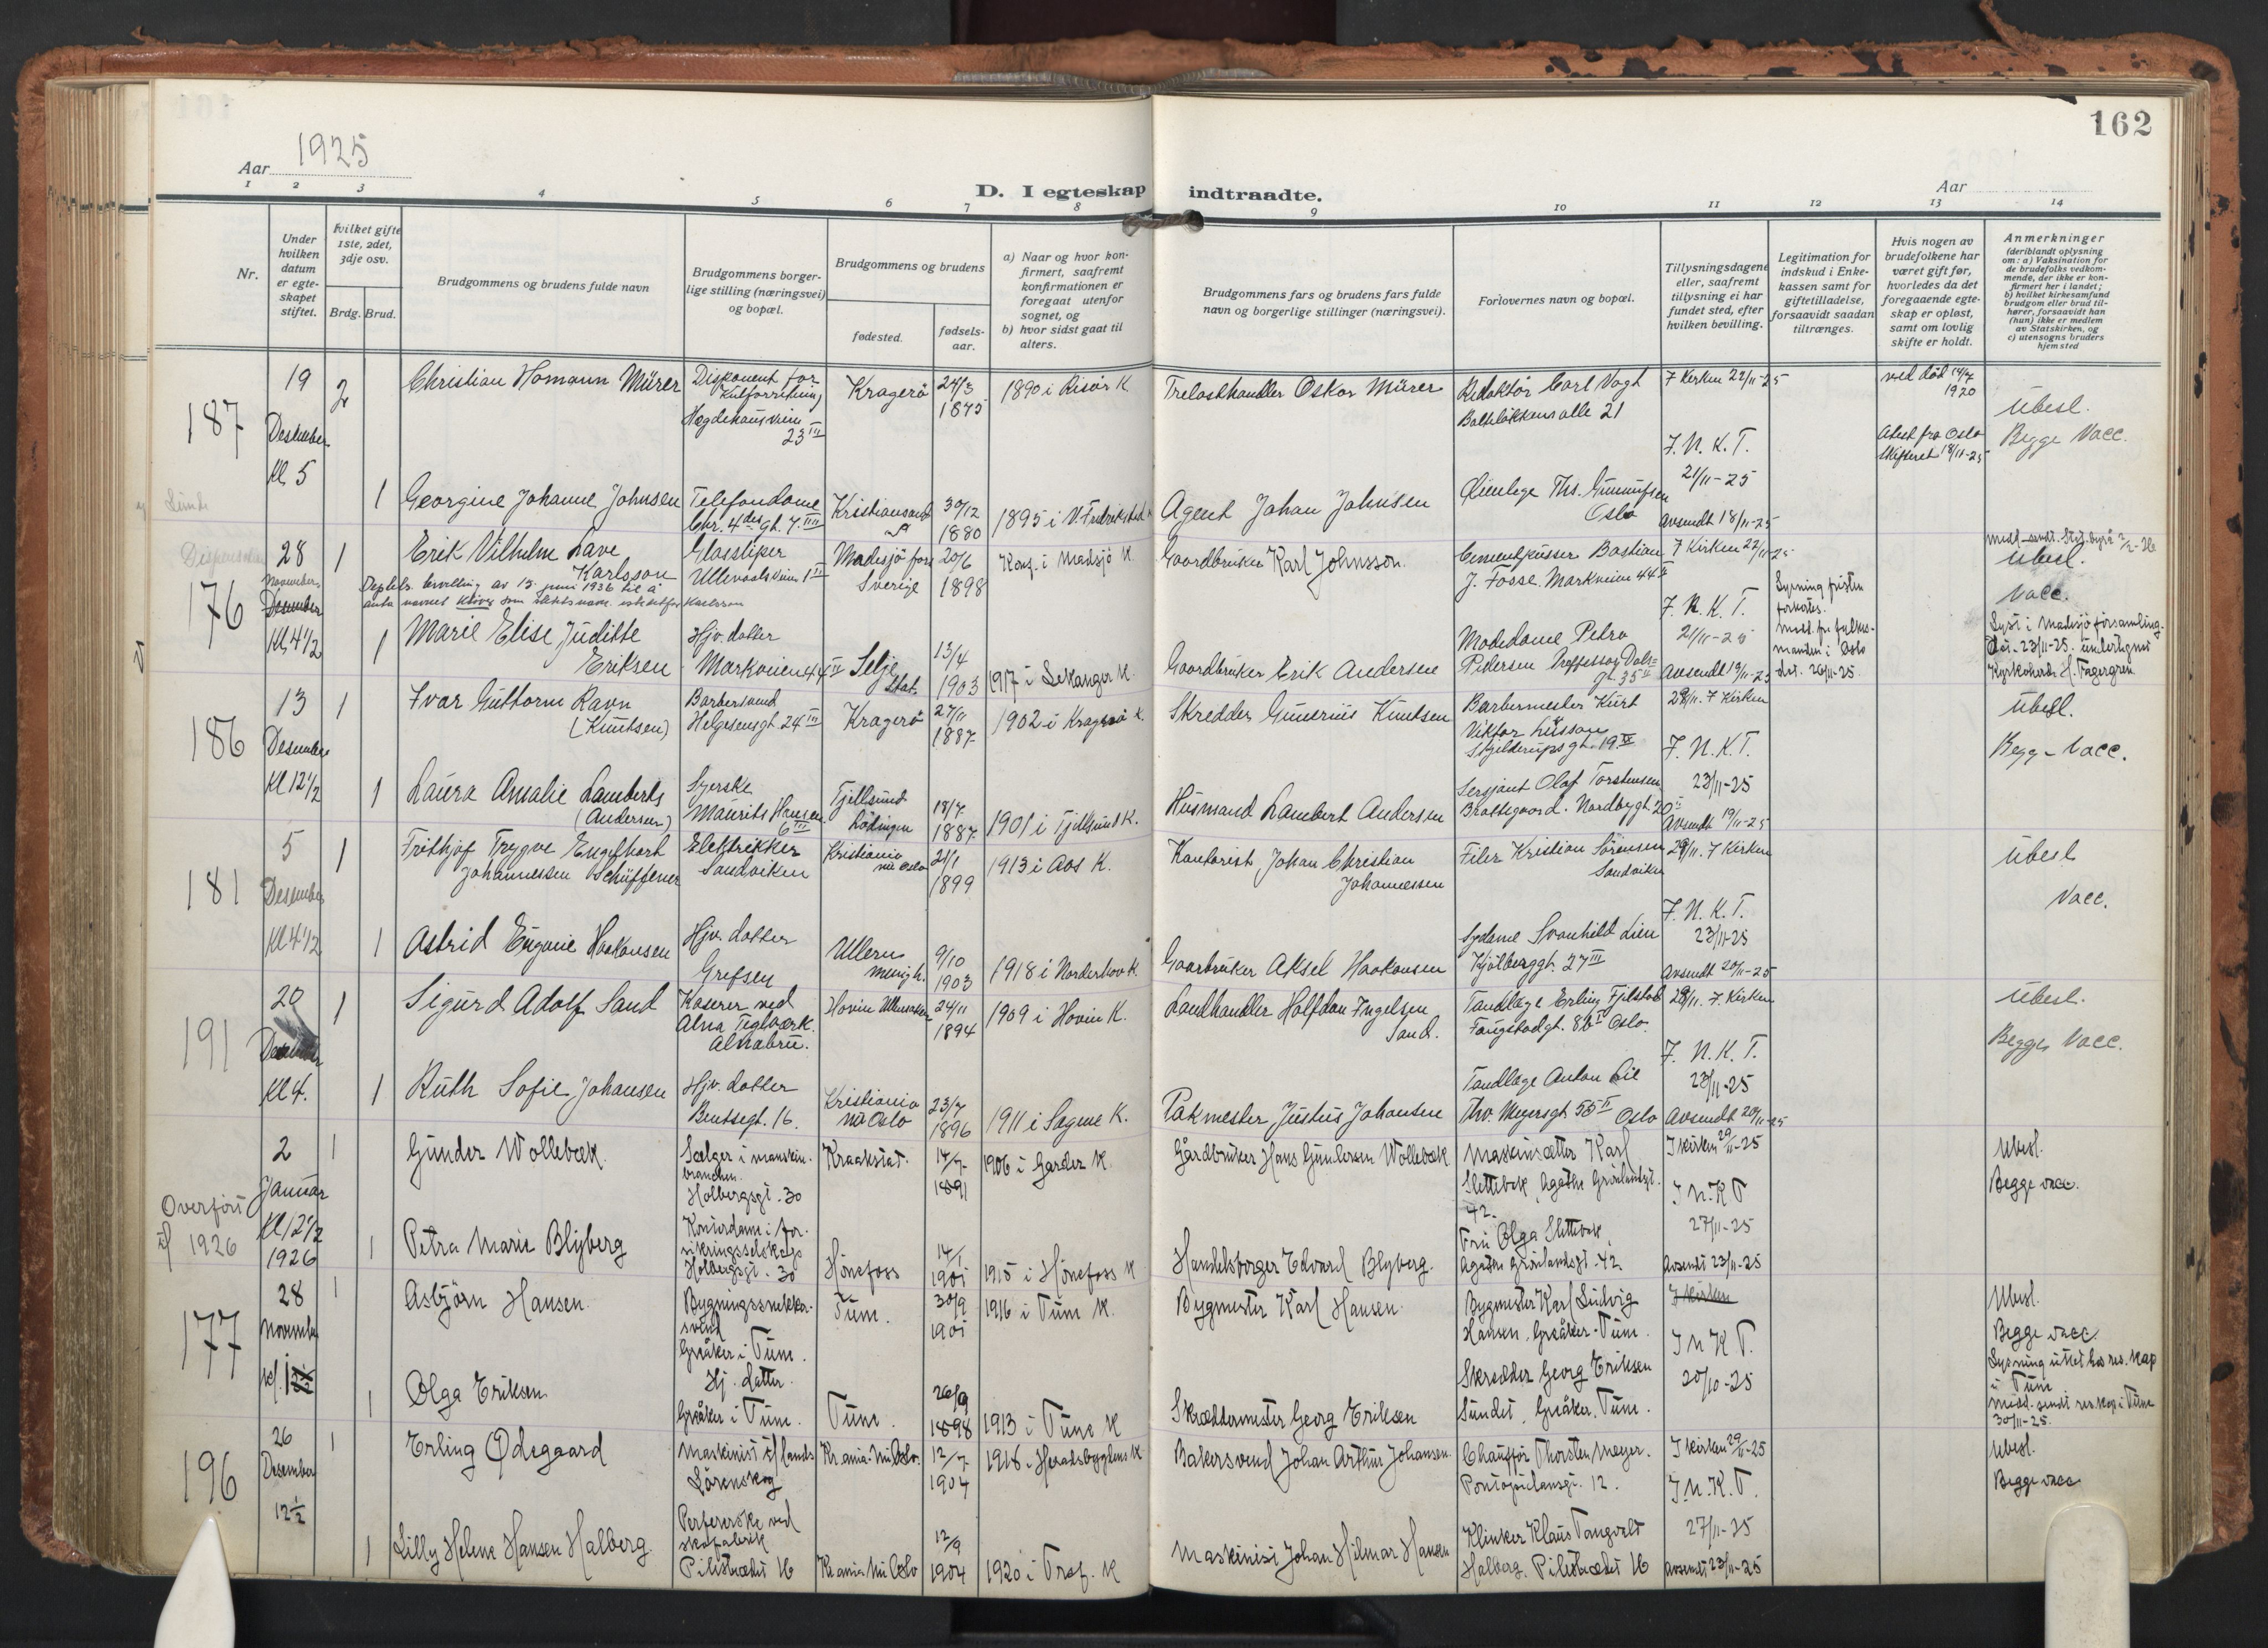 162
Aar 1925
Aar
D. I egteskap indtraadte.
1 2 3 4 5 6 7 8 9 10 11 12 13 14
Nr.
Under
hvilken
datum
er egte-
skapet
stiftet.
Hvilket gifte
1ste, 2det,
3dje osv.
Brdg. Brud.
Brudgommens og brudens fulde navn
Brudgommens borger-
lige stilling (næringsvei)
og bopæl.
Brudgommens og brudens
fødested.
fødsels-
aar.
a) Naar og hvor kon-
firmert, saafremt
konfirmationen er
foregaat utenfor
sognet, og
b) hvor sidst gaat til
alters.
Brudgommens fars og brudens fars fulde
navn og borgerlige stillinger (næringsvei).
Forlovernes navn og bopæl.
Tillysningsdagene
eller, saafremt
tillysning ei har
fundet sted, efter
hvilken bevilling.
Legitimation for
indskud i Enke-
kassen samt for
giftetilladelse,
forsaavidt saadan
tiltrænges.
Hvis nogen av
brudefolkene har
været gift før,
hvorledes da det
foregaaende egte-
skap er opløst,
samt om lovlig
skifte er holdt.
Anmerkninger
(deriblandt oplysning
om: a) Vaksination for
de brudefolks vedkom-
mende, der ikke er kon-
firmert her i landet;
b) hvilket kirkesamfund
brudgom eller brud til-
hører, forsaavidt han
(hun) ikke er medlem
av Statskirken, og
c) utensogns bruders
hjemsted
187
19
Desember
Kl. 5
2
Christian Homann Mürer
Hægdehaugsveien
23 III
Kragerö
24/3
1875
1890 i Risör K.
Trelasthandler Oskar Mürer
Redaktör Carl Vogt
Balteløkkens alle 21
I Kirken 22/11-25
ved död 14/7
1920
Ubesl.
Begge Vacc.
F. N. K. T.
21/11-25
Attest fra Oslo
Skifteret 18/11-25
1
Georgine Johanne Johnsen
Telefondame
Chr. 4des gt. 7. IIII
Kristiansund
30/12
1880
1895 i V. Fredrikstad K
Agent Johan Johnsen
Oslo
Avsendt 18/11-25
176
28
November
Desember
Kl. 4 1/2
1
Erik Vilhelm Lave
Karlsson
Glassliper
Ullevoldsveien 1 II
Madesjö fors
Sverige
20/6
1898
Konf. i Madesjö K.
Gaardbruker Karl Johnsson.
Cementpusser Bastian
J. Fosse. Markveien 44 II
I Kirken 22/11-25
Ubesl.
Vacc.
bevilling av 13. juni 1936 til å
anta navnet
F. N. K. T.
21/11-25
Avsendt 19/11-25
1
Marie Elise Juditte
Eriksen
Hjv. datter
Markveien 44 II
Selje
Stat.
13/4
1903
1917 i Leikanger K.
Gaardbruker Erik Andersen
Modedame Petra
Pedersen Proffessor Dahls
gt. 35 II
Lyst i Madesjö församling
23/11-25.
Kyrkoherde H. Fagergren.
186
13
Desember
Kl 12 1/2
1
Ivar Guttorm Ravn
(Knutsen)
Barbersvend
Helgesensgt. 24 III
Kragerö
27/11
1887
1902 i Kragerö K.
Skredder Gunerius Knutsen
Barbermester Kurt
Viktor Lüsson
Skjelderupsgt. 19 IV
29/11. I Kirken
F. N. K. T.
23/11-25
Ubesl.
Begge Vacc.
1
Laura Amalie Lamberts
(Andersen)
Syerske
Maurits Hansen
6 III
Tjellsund
Lödingen
18/7
1887
1901 i Tjellsund K.
Husmand Lambert Andersen
Sersjant Olaf Torstensen
Brattegaard. Nordbygt. 20 II
Avsendt 19/11-25
181
5
Desember
Kl 4 1/2
1
Frithjof Trygve Engelhart
Johannessen Schüffener
Elektrikker
Sandviken
Kristiania
nu Oslo
21/1
1899
1913 i Aos K.
Kontorist Johan Christian
Johannessen
Filer Kristian Sörensen
Sandviken
29/11. I Kirken
F. N. K. T.
23/11-25
Ubesl
Vacc.
1
Astrid Eugenie Haakonsen
Hjv. datter
Grefsen
Ullern
menigh.
9/10
1903
1918 i Norderhov K.
Gaarbruker Aksel Haakonsen
Sydame Svanhild Lien
Kjölberggt. 27 III
Avsendt 20/11-25
191
20
Desember
Kl 4.
1
Sigurd Adolf Sand
Kaserer ved
Alna Teglværk.
Alnabru.
Hovin Ullensaker
24/11
1894
1909 i Hovin K.
Landhandler Halfdan Ingelsen
Sand.
Tandlæge Erling Fjelstad
Faugstadgt. 8b I Oslo.
29/11. I. Kirken
F. N. K. T.
23/11-25
Ubesl.
Begge Vacc.
1
Ruth Sofie Johansen
Hjv. datter
Bentsegt. 16.
Kristiania
nu Oslo
23/7
1896
1911 i Sagene K.
Pakmester Justus Johansen
Tandlæge Anton Lie
Thv. Meyersgt 55 II Oslo
Avsendt 20/11-25
Overfört
til 1926
2
Januar
Kl 12 1/2
1926
1
Gunder Wollebæk.
Sælger i maskin-
branchen.
Holbergsgt. 30
Kraakstat.
14/7
1891
1906 i Garder K.
Gårdbruker Hans Gundersen Wollebæk
Maskinsætter Karl
Slettebek, Agathe Grönlandsgt.
42.
I kirken 29/11-25
I N. K T
27/11-25
Ubesl.
Begge vacc.
1
Petra Marie Blyberg
Kontordame i for-
sikringsselskap
Holbergsgt. 30
Hönefoss
14/1
1901
1915 i Hönefoss K
Handelsborger Edvard Blyberg.
Fru Olga Slettebek,
Agathe Grönlandsgt. 42
Avsendt 23/11-25
177
28
November
1
Asbjörn Hansen.
Bygningssnekker-
svend
Greåker i Tune.
Tune.
30/9
1901
1916 i Tune K.
Bygmester Karl Hansen.
Bygmester Karl Ludvig
Hansen, Greåker. Tune.
I kirken
I N K T.
20/10-25
Ubesl.
Begge vacc.
Lysning uttat hos res. kap
i Tune
medd. sendt res. kap. i Tune
30/11-25.
1
Olga Eriksen
Hj. datter.
Greåker i Tune.
Tune.
26/9
1898
1913 i Tune K
Skræddermester Georg Eriksen
Skrædder Georg Eriksen
Sundet, Greåker. Tune.
196
26
Desember
12 1/2
1
Erling Ødegaard
Lörenskog
Kr.ania. Nu Oslo.
12/7
1904
Bakersvend Johan Arthur Johansen.
Chauffør Thorsten Meyer.
I kirken 29/11-25
I. N. K. T.
27/11-25
Ubesl.
Begge vacc
1
Lilly Helene Hansen Halberg.
skofabrik
Pilestrædet 16
Kr.ania. Nu Oslo
12/9
1904
1920 i Tref. K
Maskinist Johan Hilmar Hansen
Klinker Klaus Tangvald
Halberg. Pilestrædet 16
Avsendt 23/11-25